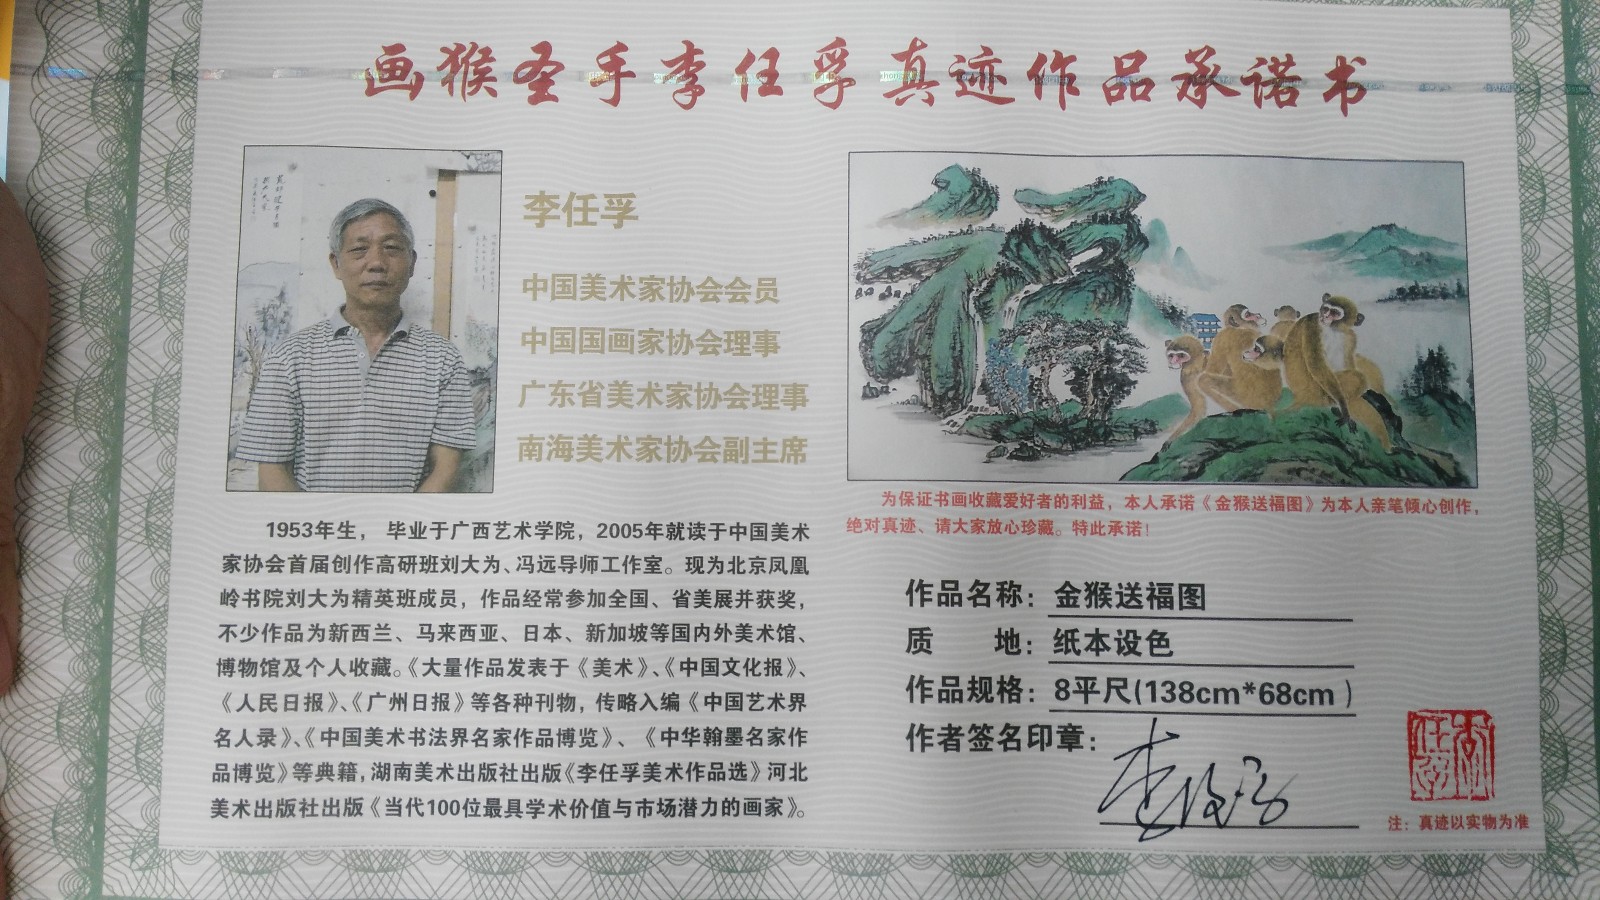 画猴圣手李任孚真迹作品承诺书
李任孚
中国美术家协会会员
中国国画家协会理事
广东省美术家协会理事
南海美术家协会副主席
1953年生， 毕业于广西艺术学院，2005年就读于中国美术
家协会首届创作高研班刘大为、冯远导师工作室。现为北京凤凰
岭书院刘大为精英班成员，作品经常参加全国、省美展并获奖，
不少作品为新西兰、马来西亚、日本、新加坡等国内外美术馆、
博物馆及个人收藏。《大量作品发表于《美术》、《中国文化报》、
《人民日报》、《广州日报》等各种刊物，传略入编《中国艺术界
名人录》、《中国美术书法界名家作品博览》、《中华翰墨名家作
品博览》等典籍，湖南美术出版社出版《李任孚美术作品选》河北
美术出版社出版《当代100位最具学术价值与市场潜力的画家》。
为保证书画收藏爱好者的利益，本人承诺《金猴送福图》为本人亲笔倾心创作，
绝对真迹、请大家放心珍藏。特此承诺！
作品名称：金猴送福图
质 地：纸本设色
作品规格：8平尺(138cm*68cm）
作者签名印章：李任孚
注：真迹以实物为准